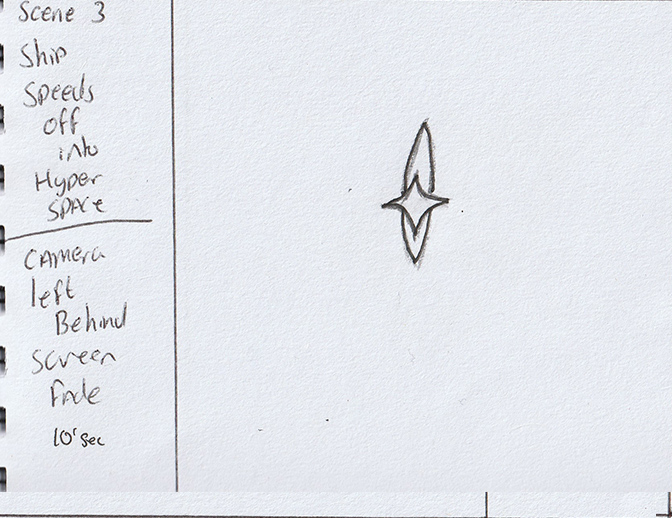 Scene 3
Ship
Speeds
off
into
Hyper
SPACE
CAMERA
left
Behind
Screen
Fade
10'sec